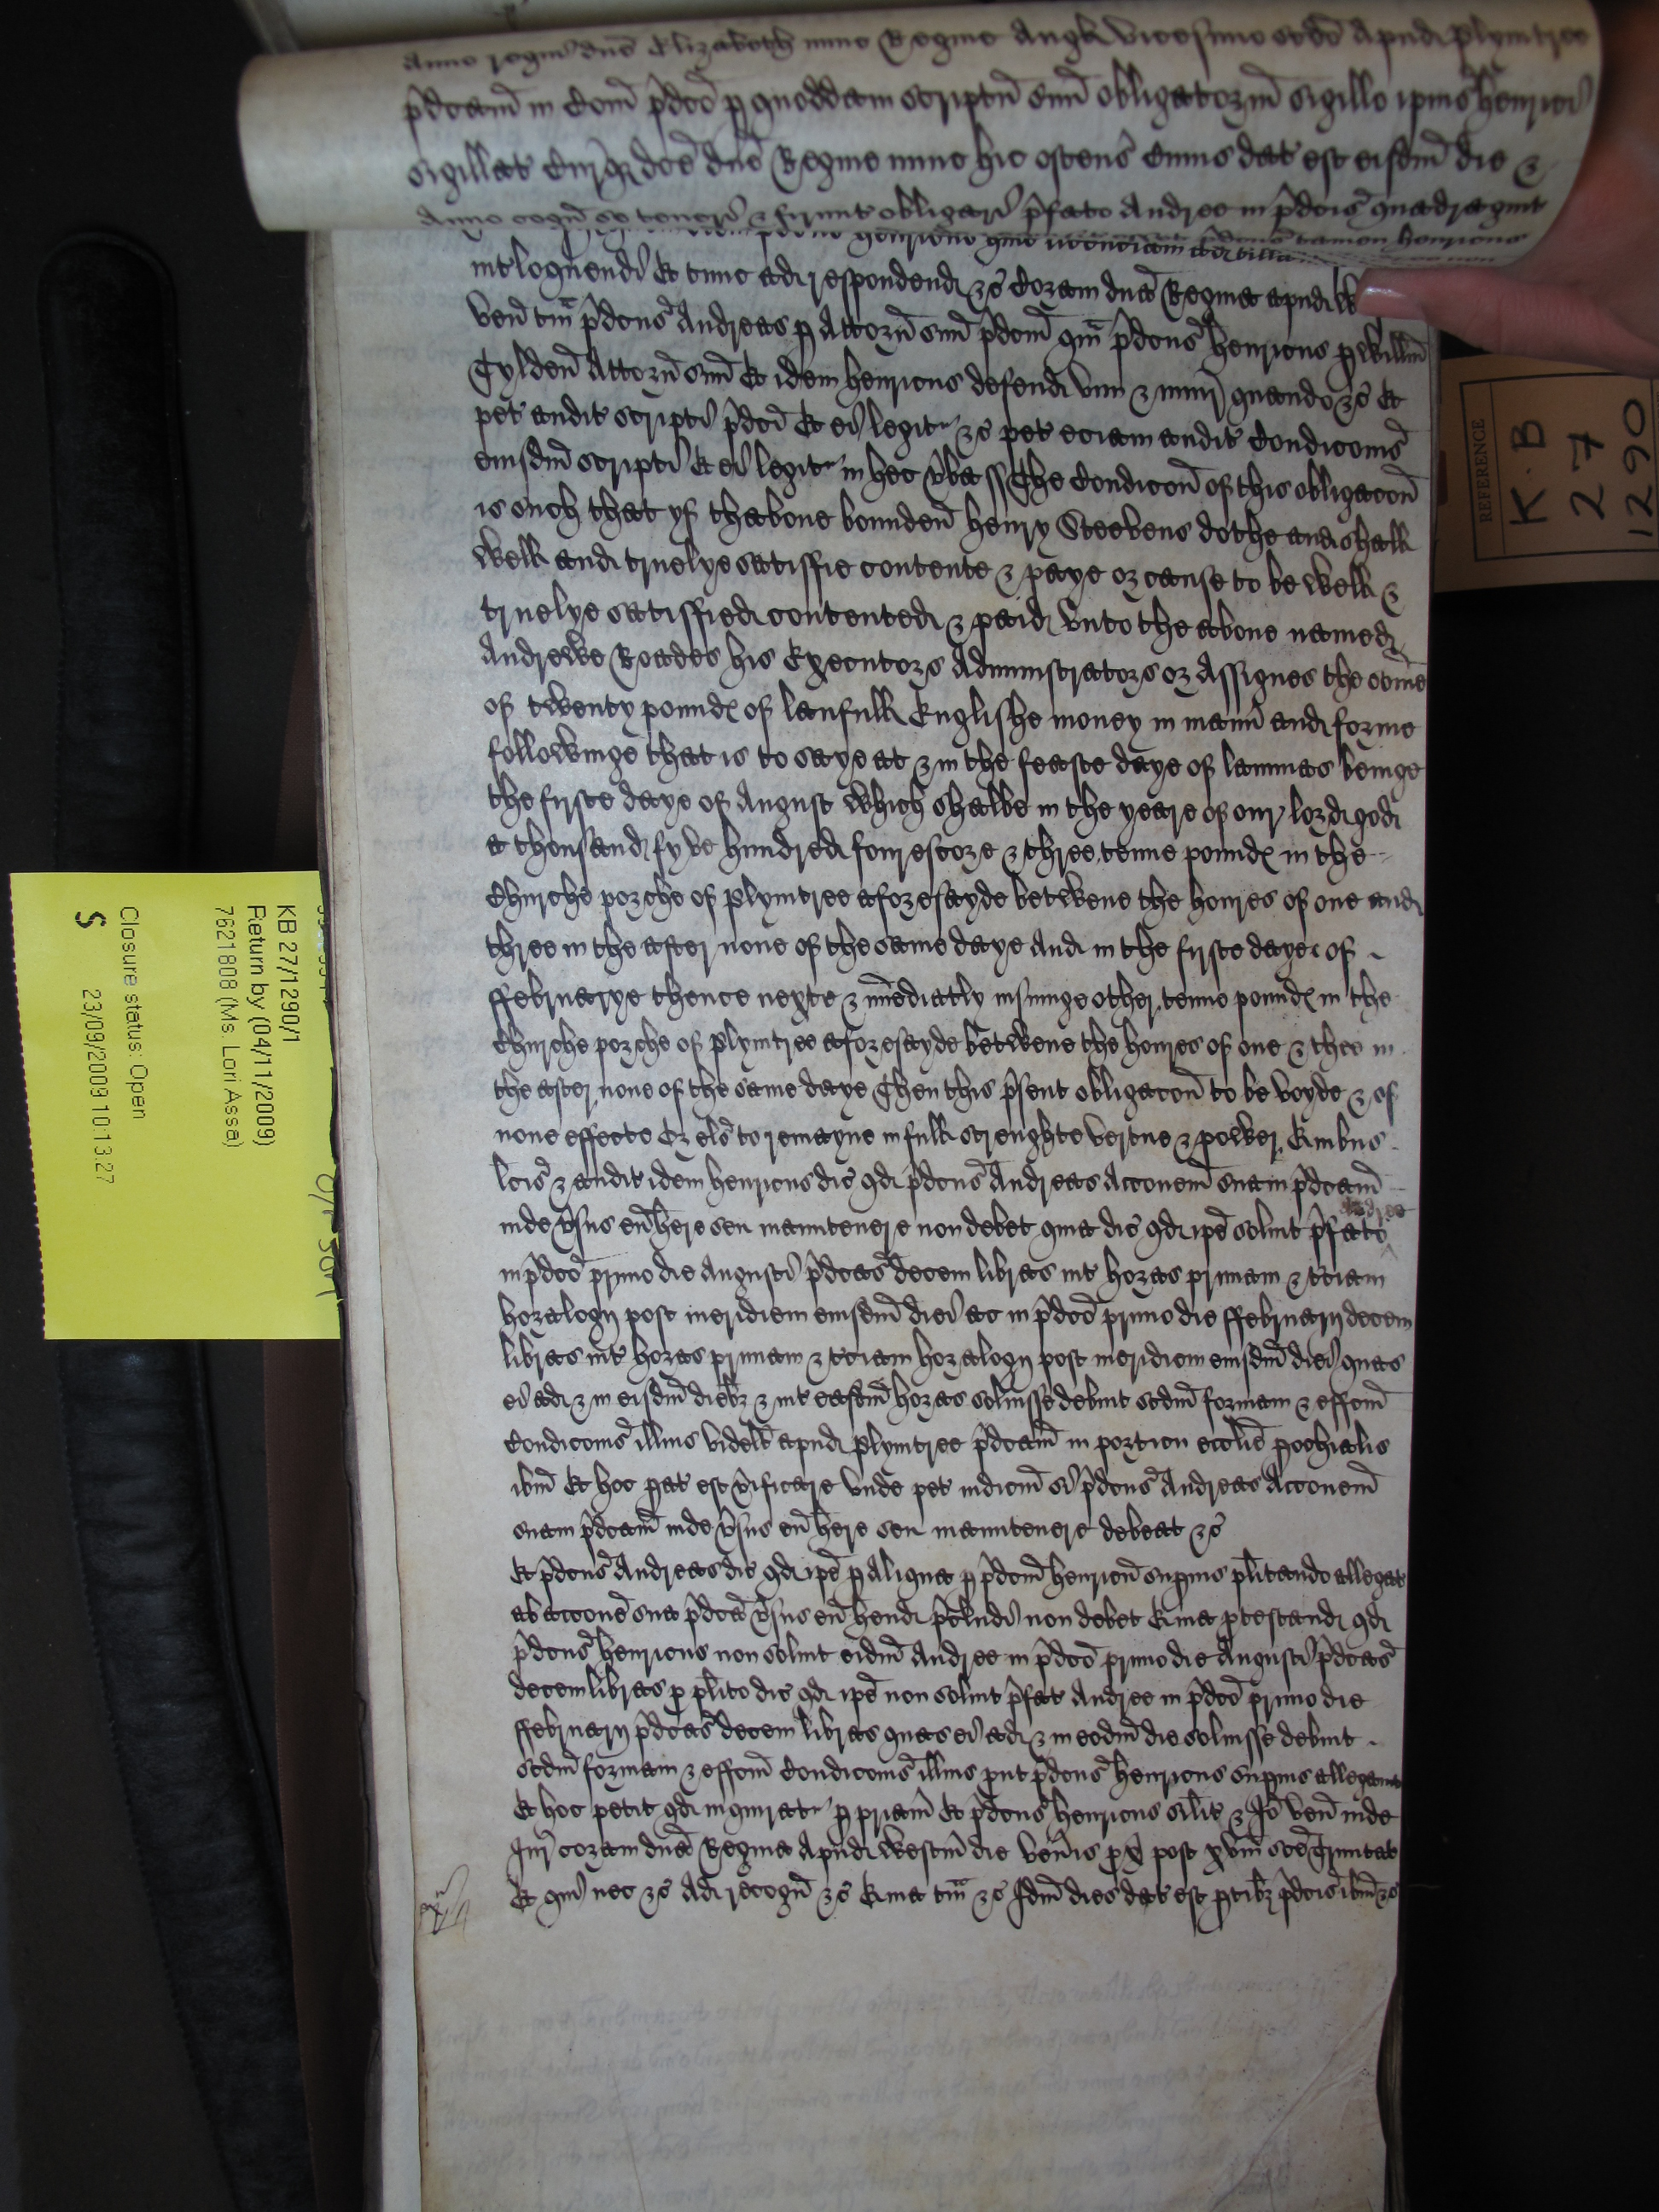 Anno regni dne Elizabeth nunc Regine Angl vicesimo scdo Apud Plymtree
pdcam in Com pdco p quoddam scriptu suu obligatorm sigillo ipius Henrici
sigillat Curieq dce dne Regine nunc hic ostens Cuius dat est eisdm die &
Anno cogn se teneri & firmit obligari pfato Andree in pdcis quadragint
pdcus tamen Henricus
intloquendi Et tunc ad respondend &c Coram dna Regina apud
ven tm pdcus Andreas p Attorn suu pdcm qm pdcus Henricus p Willm
Tylden Attorn suu Et idem Henricus defend vim & iniur quando &c Et
pet audit scripti pdci Et ei legitr &c pet eciam audit Condicois
eiusdm scripti Et ei legitr in hec vba ss The Condicon of this obligacon
is such that yf thabove bounden Henry Steevens dothe and shall
well and truelye satisfie contente & paye or cause to be well &
truelye satisfied contented & paid unto the above named
Andrewe Roades his Executors Administrators or Assignes the some
of twenty pounds of laufull Englishe money in mann and forme
followinge that is to saye at & in the feaste daye of lammas beinge
the firste daye of August which shalbe in the yeare of our lord god
a thousand fyve hundred fourescore & three tenne pounds in the
Churche porche of Plymtree aforesayde betwene the houres of one and
three in the after none of the same daye And in the firste daye of
ffebruarye thence nexte & imediatly insuinge other tenne pounds in the
Churche porche of Plymtree aforesayde betwene the houres of one & thre in
the after none of the same daye Then this psent obligacon to be voyde & of
none effecte Or els to remayne in full strenghte vertue & power Quibus
lcis & audit idem Henricus dic qd pdcus Andreas Acconem suam pdcam
inde vsus eu here seu manutenere non debet quia dic qd ipe solvit pfato Andree
in pdco primo die Augusti pdcas decem libras int horas primam & tciam
horalogij post meridiem eiusdm diei ac in pdco primo die ffebruarij decem
libras int horas primam & tciam horalogij post meridiem eiusdm diei quas
ei ad & in eisdm diebz & int easdm horas solvisse debuit scdm formam & effcm
Condicois illius videlt apud Plymtree pdcam in porticu ecclie pochialis
ibm Et hoc pat est vificare unde pet iudiciu si pdcus Andreas Acconem
suam pdcam inde vsus eu here seu manutenere debeat &c
Et pdcus Andreas dic qd ipe p aliqua p pdcm Henricu supius plitando allegat
ab accone sua pdca vsus eu hend pcludi non debet Quia ptestand qd
pdcus Henricus non solvit eidm Andree in pdco primo die Augusti pdcas
decem libras p plito dic qd ipe non solvit pfat Andree in pdco primo die
ffebruarij pdcas decem libras quas ei ad & in eodm die solvisse debuit
scdm formam & effcm Condicois illius put pdcus Henricus supius allegavit
Et hoc petit qd inquiratr p priam Et pdcus Henricus silit &c Io ven inde
Jur coram dna Regina Apud Westm die Venis px post xvm sce Trinitat
Et qui nec &c Ad recogn &c Quia tm &c Idm dies dat est ptibz pdcis ibm &c
REFERENCE
K.B
27
1290
KB 27/1290/1
Return by (04/11/2009)
7621808 (Ms. Lori Assa)
Closure status: Open
S
23/09/2009 10:13:27